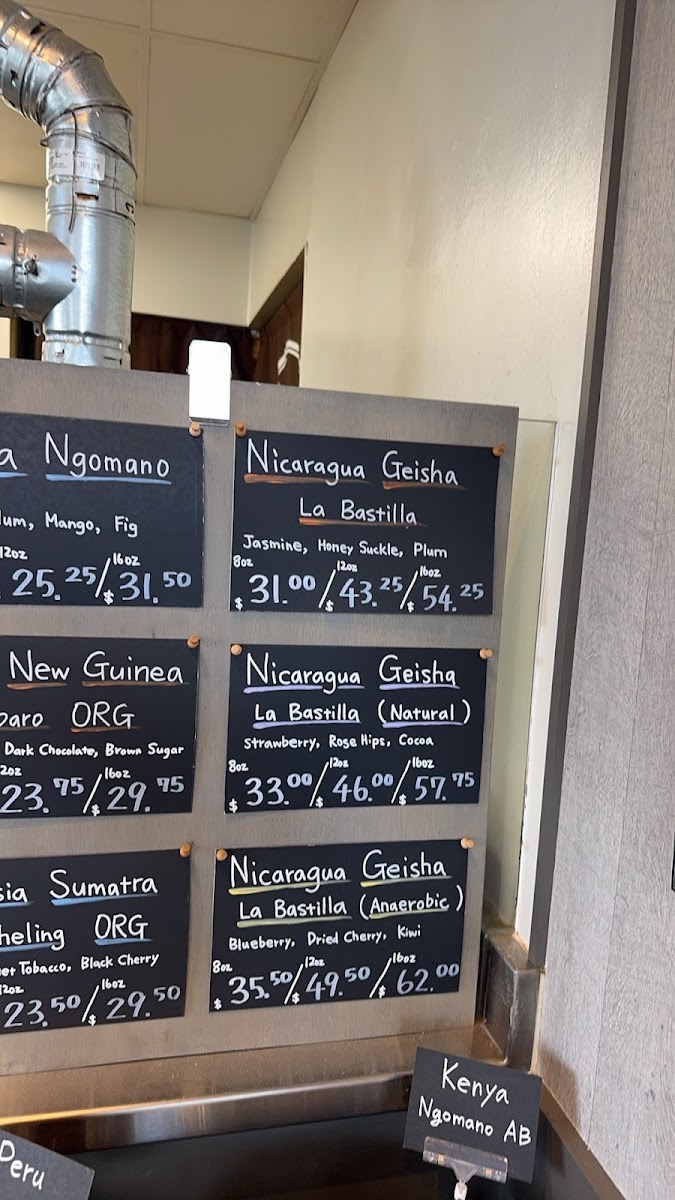 a Ngomano
lum, Mango, Fig
12oz 16oz
25.25/$31.50
Nicaragua Geisha
La Bastilla
Jasmine, Honey Suckle, Plum
8oz 12oz 16oz
$31.00/$43.25/$54.25
New Guinea
paro ORG
Dark Chocolate, Brown Sugar
2oz 16oz
23.75/$29.75
Nicaragua Geisha
La Bastilla (Natural)
Strawberry, Rose Hips, Cocoa
8oz 12oz 16oz
$33.00/$46.00/$57.75
sia Sumatra
heling ORG
et Tobacco, Black Cherry
12oz 16oz
23.50/$29.50
Nicaragua Geisha
La Bastilla (Anaerobic)
Blueberry, Dried Cherry, Kiwi
8oz 12oz 16oz
$35.50/$49.50/$62.00
Kenya
Ngomano AB
Peru